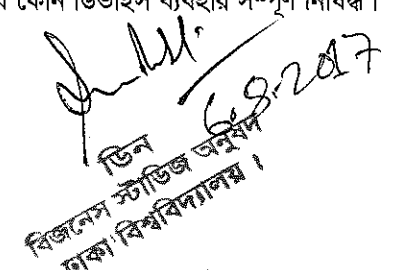 কোন ডিভাইস ব্যবহার সম্পূর্ণ নিষিদ্ধ।
6.8.2017
ডিন
বিজনেস স্টাডিজ অনুষদ
ঢাকা বিশ্ববিদ্যালয়।